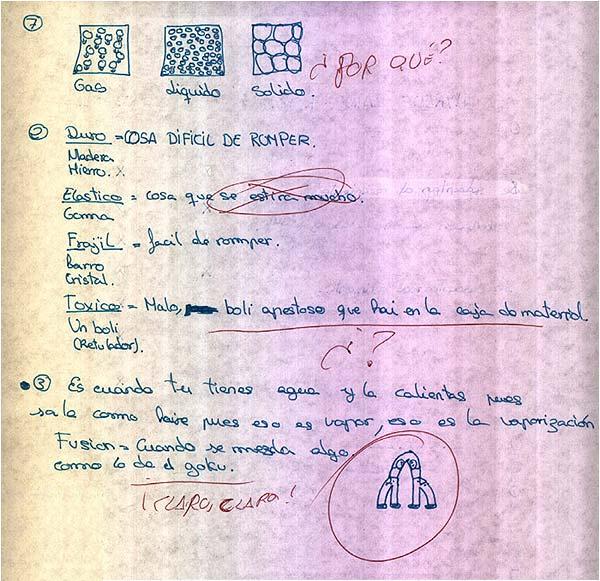 7
Gas liquido Solido.
¿POR QUÉ?
2 Duro = COSA DIFICIL DE ROMPER.
Madera
Hierro. X
Elastico = cosa que se estira mucho.
Goma
Frajil = facil de rormper.
Barro
Cristal.
Toxico = Malo, boli apestoso que hai en la caja do material
Un boli
(Retulador).
¿?
3 Es cuándo tu tienes agua y la calientas pues
sale como haire pues eso es vapor, eso es la vaporización
Fusion = Cuando se mezcla algo
como lo de el goku.
¡CLARO, CLARO!